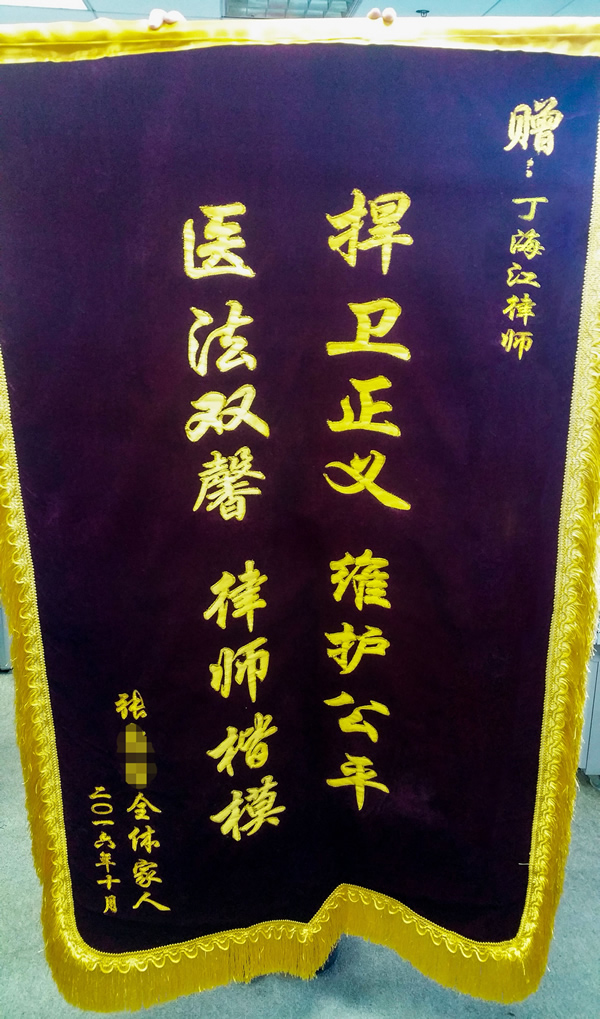 赠：丁海江律师
捍卫正义 维护公平
医法双馨 律师楷模
张全体家人
二〇一六年十月